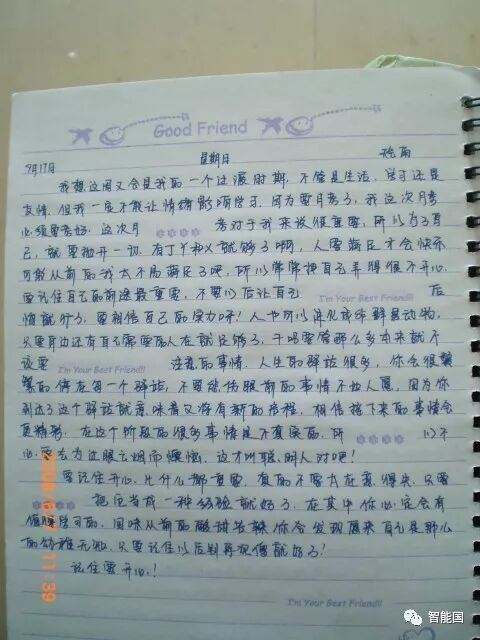 Good Friend
9月17日 星期日 阴雨
我想这周又会是我的一个过渡时期,不管是生活,学习还是
友情.但我一定不能让情绪影响学习.因为要月考了,我这次月考
必须要考好.这次月考对于我来说很重要,所以为了自
己,就要抛开一切.有丁Y和X就够了啊,人要满足才会快乐
可能从前的我太不易满足了吧,所以常常把自己弄得很不开心.
要记住自己的前途最重要,不要以后让自己 后
I'm Your Best Friend!!
悔就行了.要相信自己的实力呀!人也可以
只要身边还有自己需要的人在就足够了,干吗要管那么多本来就不
该要 注意的事情.人生的驿站很多,你会很
I'm Your Best Friend!!
的停在每一个驿站,不要总怕眼前的事情不如人愿,因为你
到达了这个驿站就意味着又将有新的启程.相信接下来的事情会
更精彩.在这个阶段的很多事情是不真实的.所 以不
必要去为过眼云烟而懊恼.这才叫聪明人对吧!
要记住开心比什么都重要.真的不要太在意得失.只要
把它当成一种经验就好了.在其中你必定会有
值得学习的.回味从前的酸甜苦辣你会发现原来自己是那么
的幼稚无知.只要记住以后别再犯傻就好了!
记住要开心!
I'm Your Best Friend!!
智能国